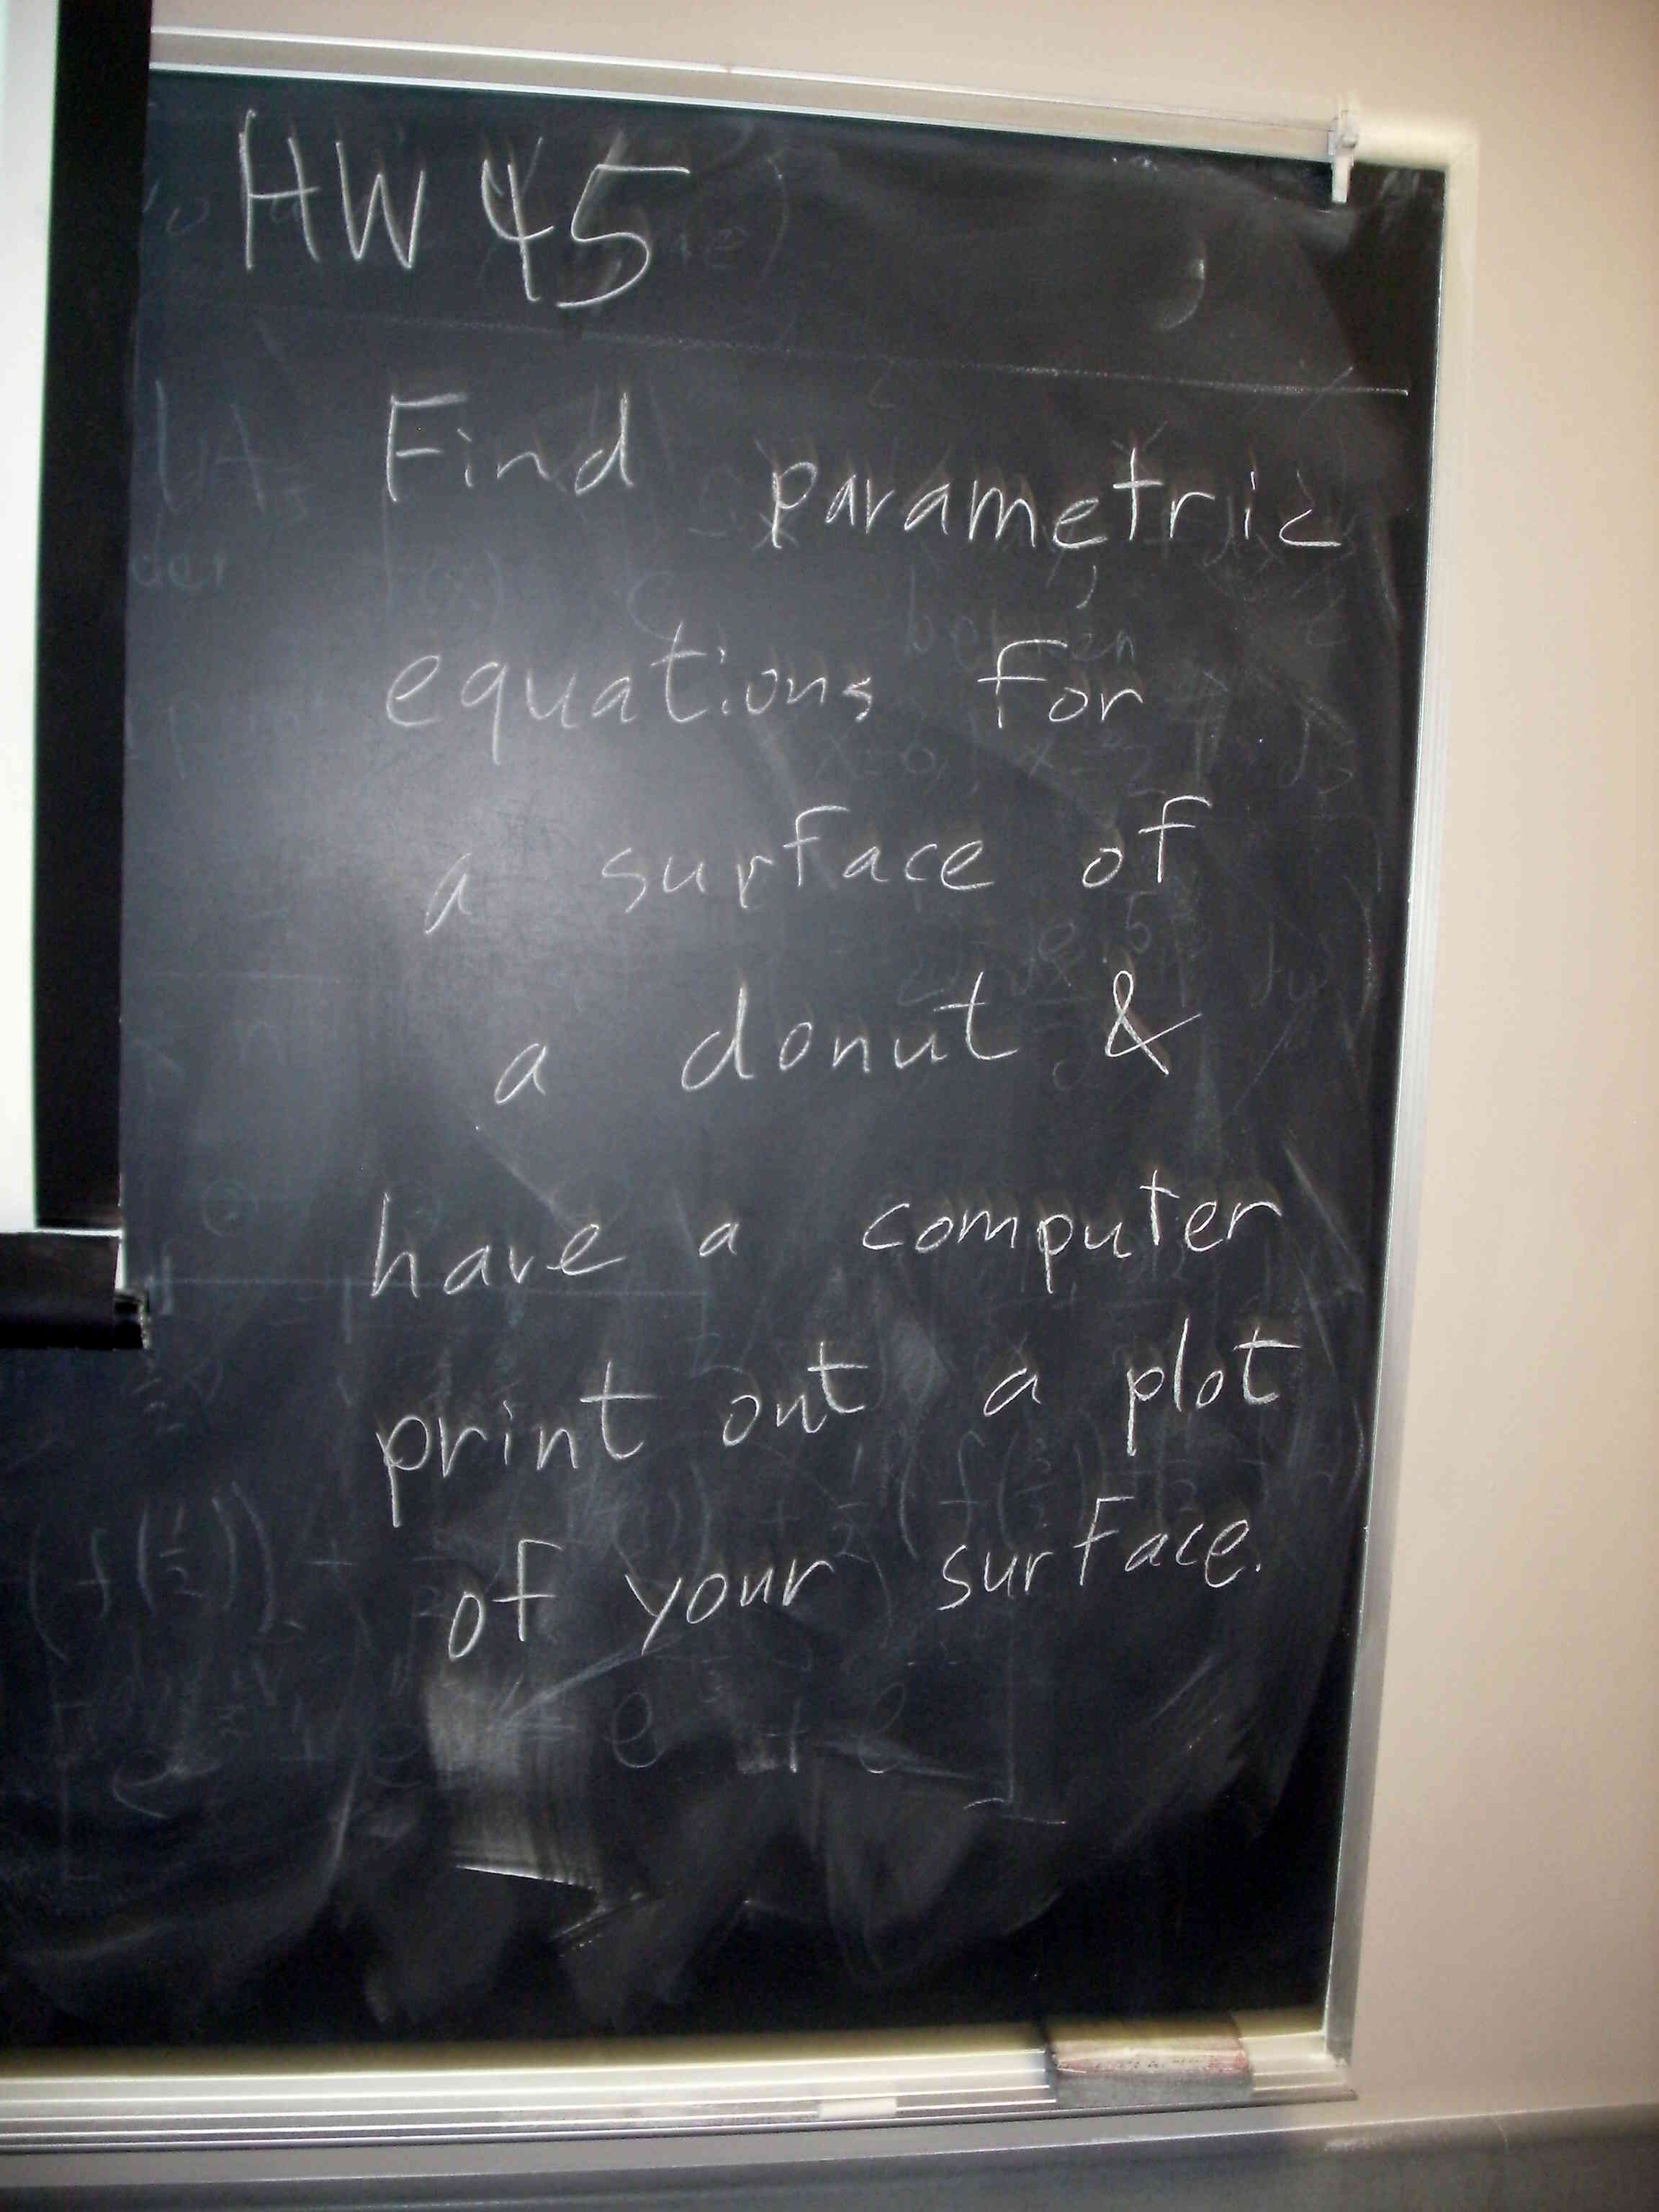 HW 45
Find parametric
equations for
a surface of
a donut &
have a computer
print out a plot
of your surface.